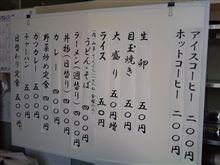 アイスコーヒー 二〇〇円
ホットコーヒー 二〇〇円
生卵 五〇円
目玉焼き 五〇円
大盛り 五〇円増
ライス 五〇円
うどん・そば 四〇〇円
ラーメン(週替り) 四〇〇円
丼物(日替り) 四〇〇円
野菜炒め定食 五〇〇円
カツカレー 五〇〇円
チャーハン 五〇〇円
日替わり定食 五〇〇円